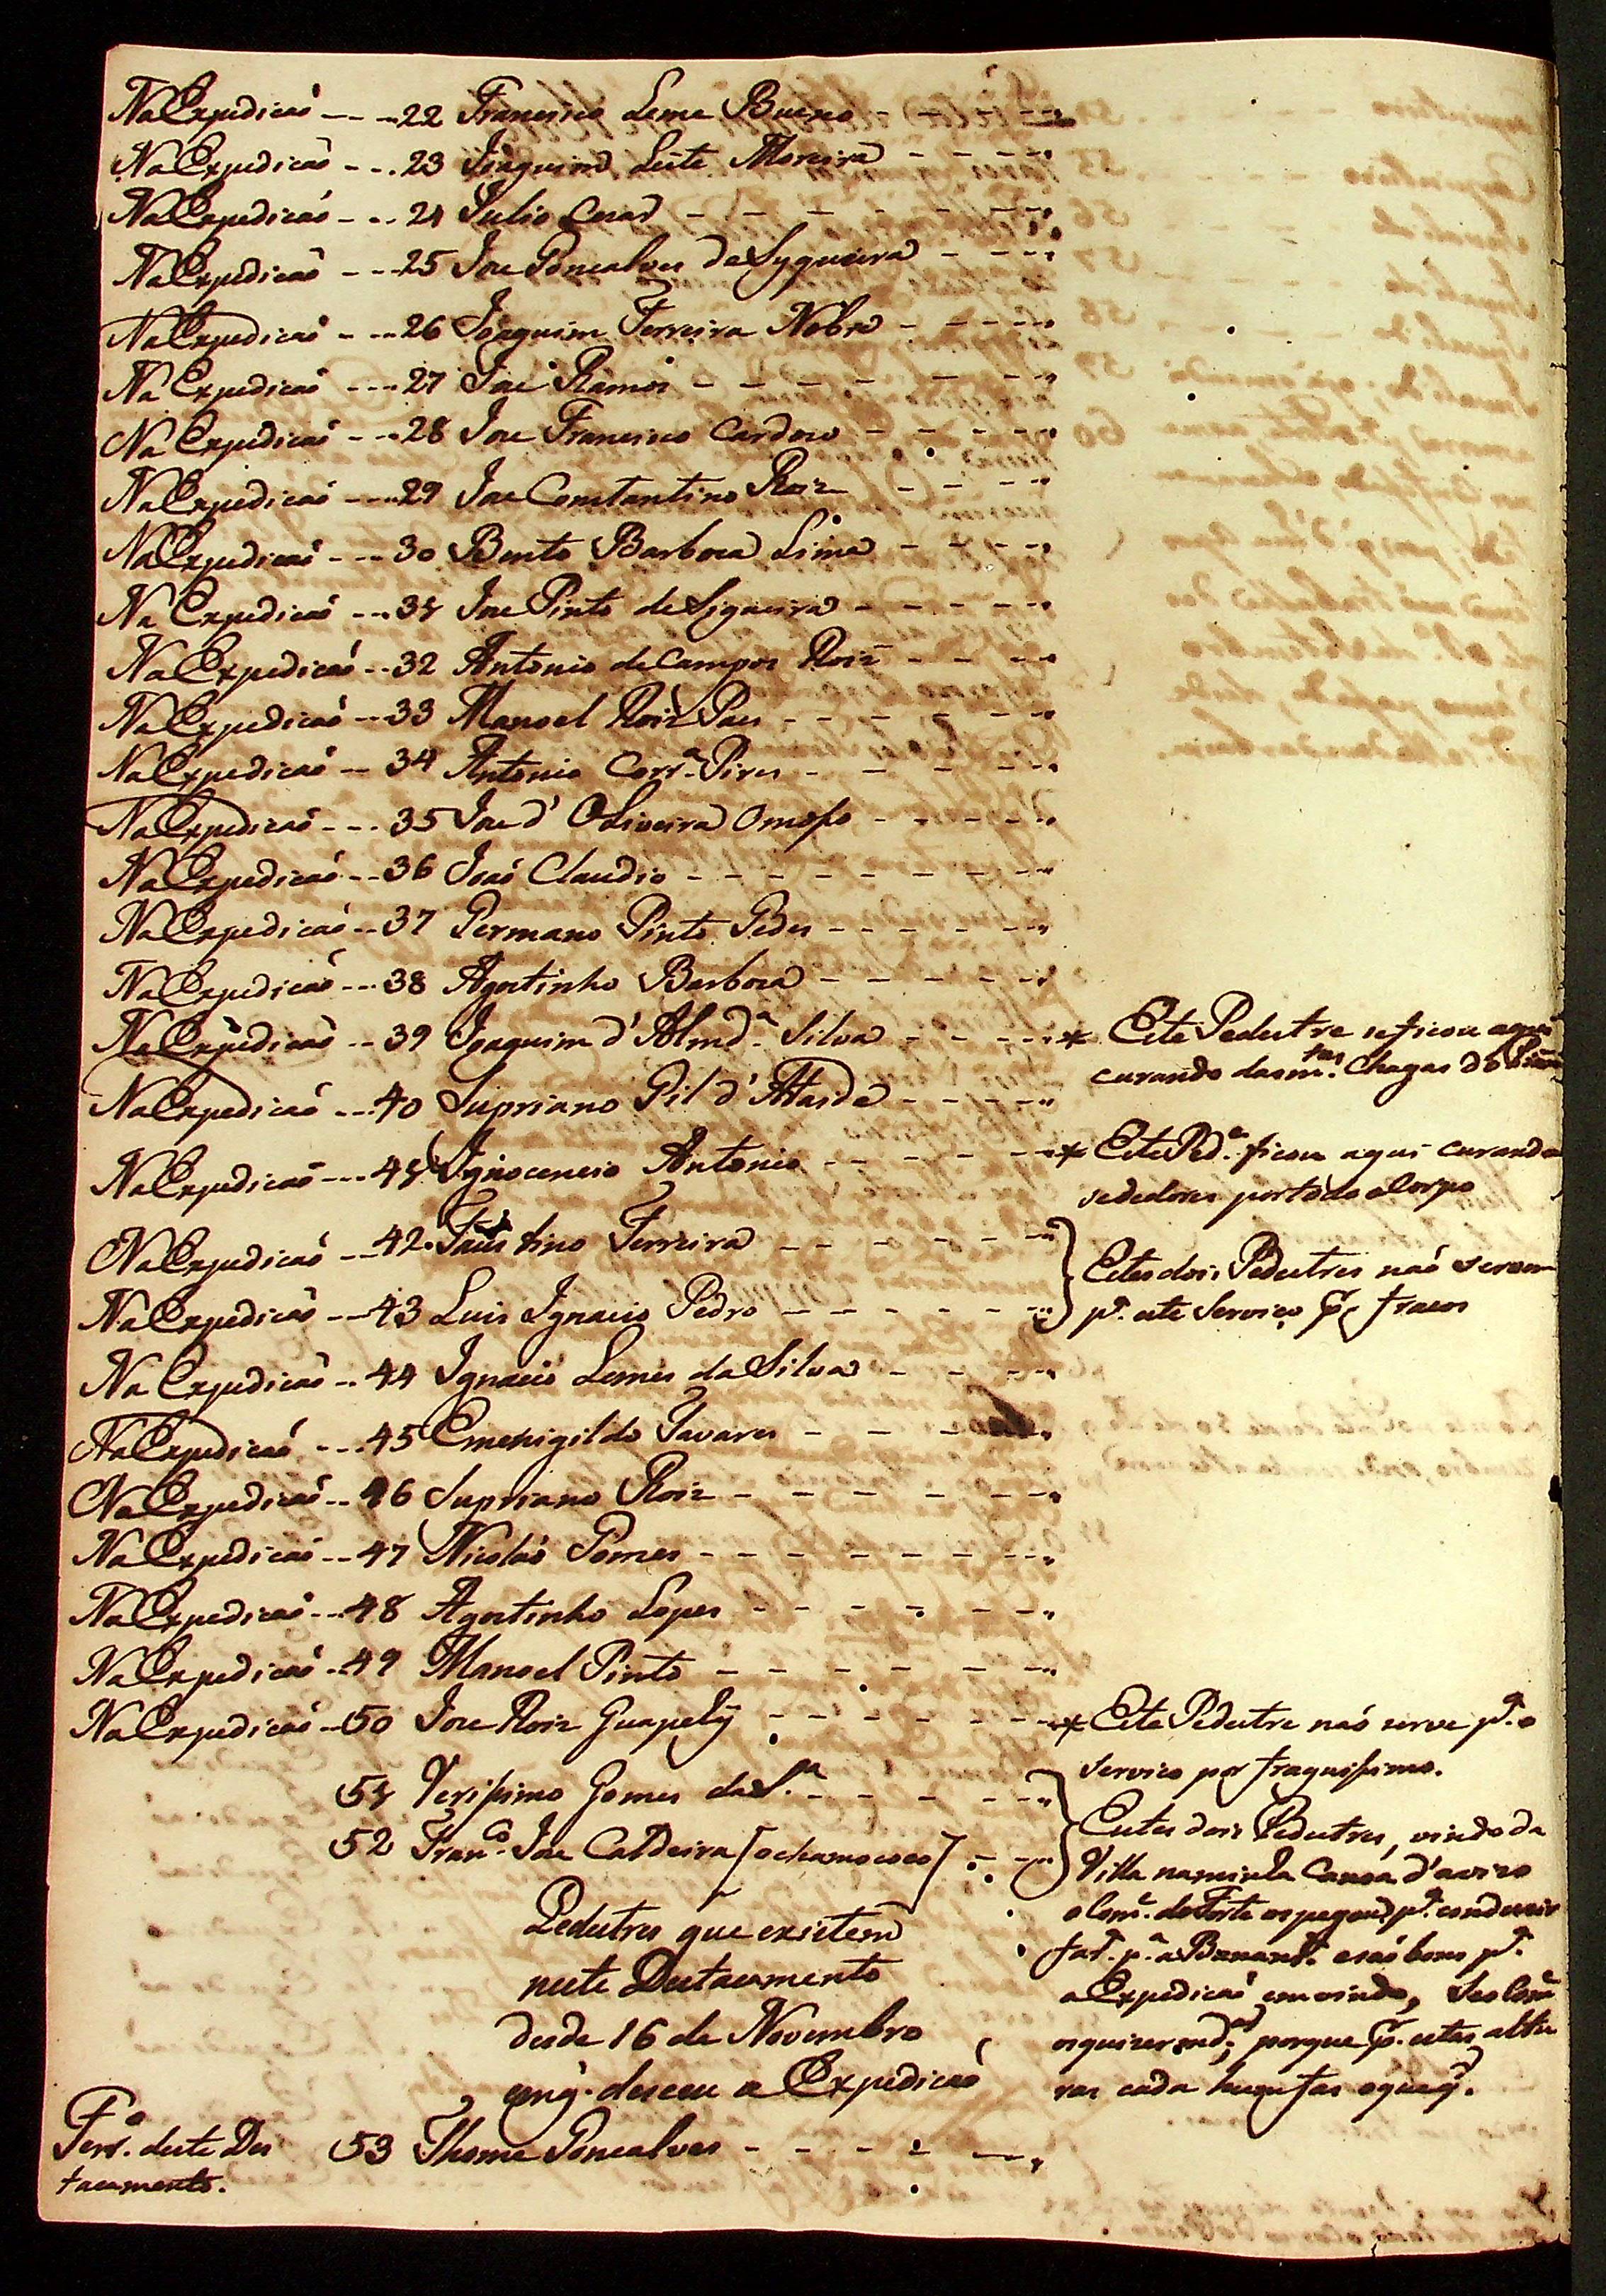 Na Expedicaõ - - - 22 Francisco Leme Bueno - - - - -
Na Expedicaõ - - - 23 Joaquim Leite Moreira - - - -
Na Expedicaõ - - - 24 Julio Cesar - - - - - - -
Na Expedicaõ - - - 25 Joze Goncalves de Syqueira - - - -
Na Expedicaõ - - - 26 Joaquim Ferreira Nobre - - - - -
Na Expedicaõ - - - 27 Joze Ramos - - - - - - -
Na Expedicaõ - - - 28 Joze Francisco Cardozo - - - - -
Na Expedicaõ - - - 29 Joze Constantino Roiz - - - -
Na Expedicaõ - - - 30 Bento Barboza Lima - - - -
Na Expedicaõ - - - 31 Joze Pinto de Siqueira - - - - -
Na Expedicaõ - - 32 Antonio de Campos Roiz - - - -
Na Expedicaõ - - 33 Manoel Roiz Paes - - - - - - -
Na Expedicaõ - - 34 Antonio Corr.ª Pires - - - - -
Na Expedicaõ - - - 35 Joze d' Oliveira - - - - -
Na Expedicaõ - - 36 Joaõ Claudio - - - - - - - -
Na Expedicaõ - - 37 Germano Pinto - - - - - -
Na Expedicaõ - - - 38 Agostinho Barboza - - - - - -
Na Expedicaõ - - 39 Joaquim d' Almd.ª Silva - - - - - * Este Pedestre se ficou aqui
curando das m.tas chagas do
Na Expedicaõ - - - 40 Supriano Gil d' - - - - -
Na Expedicaõ - - - 41 Ignocencio Antonio - - - - - - * Este Ped.e ficou aqui curando
se de dores por todo o Corpo
Na Expedicaõ - - 42 Faustino Ferreira - - - - - - }
Estes dois Pedestres naõ servem
Na Expedicaõ - - 43 Luis Ignacio Pedro - - - - - - } p.ª este Servico p.r fracos
Na Expedicaõ - - 44 Ignacio Lemes da Silva - - - -
Na Expedicaõ - - - 45 Emenigildo Tavares - - - -
Na Expedicaõ - - 46 Supriano Roiz - - - - - - -
Na Expedicaõ - - 47 Nicoláo Gomes - - - - - - - -
Na Expedicaõ - - 48 Agostinho Lopes - - - - - - -
Na Expedicaõ - 49 Manoel Pinto - - - - - - -
Na Expedicaõ - 50 Joze Roiz Guapelÿ - - - - - - - * Este Pedestre naõ serve p.ª o
servico por fraquissimo.
51 Verissimo Gomes da S.ª - - - - - - }
52 Fran.co Joze Caldeira [o chamococo] - - - }
Estes dois Pedestres, vindo da
Villa na mesma Canoa d'avizo
o Com.e do Forte os pegou p.ª conduzir
p.ª a e saõ bons p.ª
a Expedicaõ em vindo, Se o Com.e
os quizer mand.ar; porque p.r estas altu
ras cada hum faz o que q.r
Pedestres que existem
neste Destacamento
desde 16 de Novembro
em q. desceu a Expedicaõ
Ferr.o deste Des
tacamento.
53 Thome Goncalves - - - - -